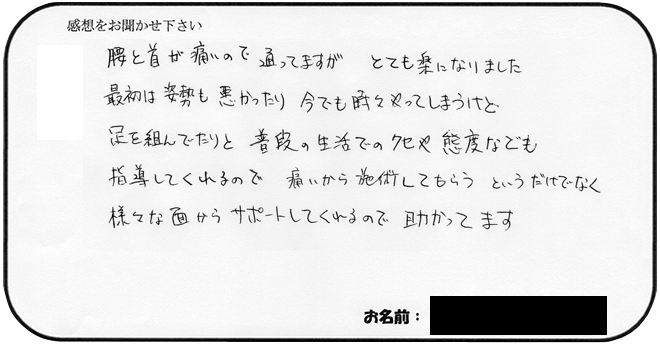 感想をお聞かせ下さい
腰と首が痛いので 通ってますが とても楽になりました
最初は 姿勢も 悪かったり 今でも 時々やってしまうけど
足を組んでたりと 普段の生活でのクセや 態度なども
指導してくれるので 痛いから 施術してもらう というだけでなく
様々な面から サポートしてくれるので 助かってます
お名前：